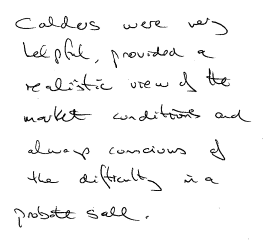 Calders were very
helpful, provided a
realistic view of the
market conditions and
always conscious of
the difficulty in a
probate sale.